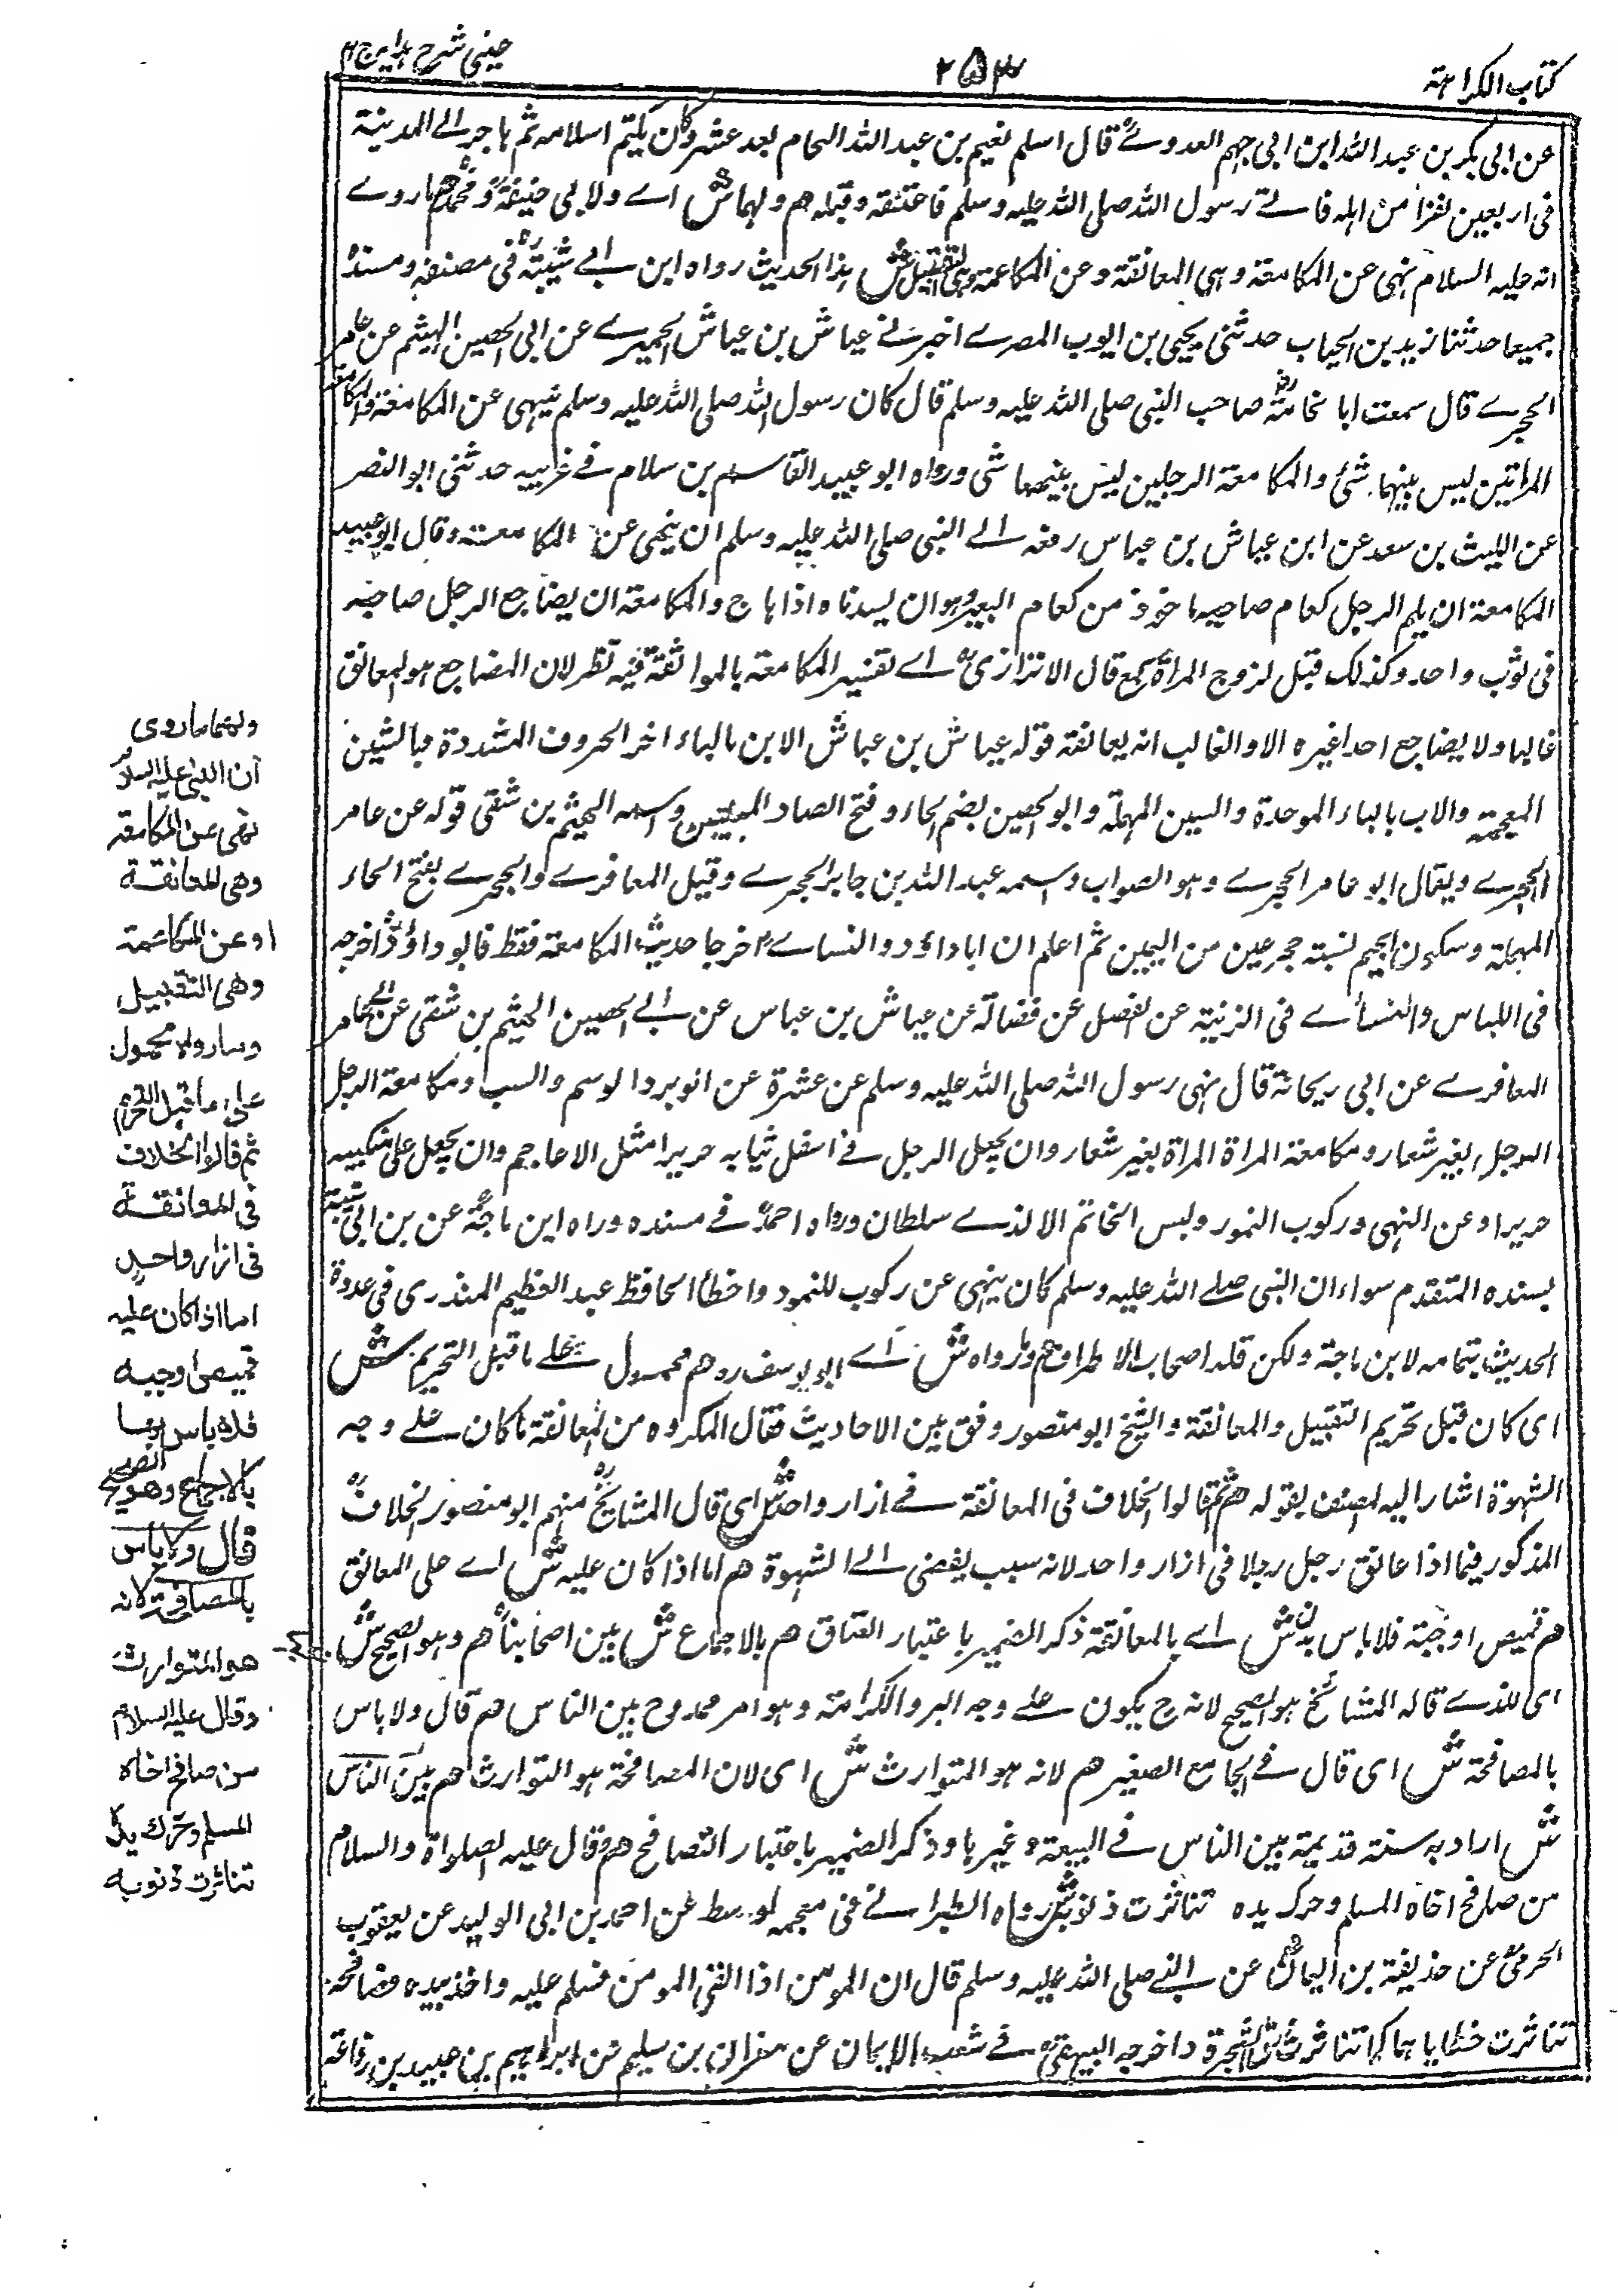 كتاب الكراهة
٢٥٣
عينى شرح هدايه ج٤
عن ابى بكر بن عبد الله ابن ابى جهم العدوے قال اسلم نعيم بن عبد الله النحام بعد عشر وكان يكتم اسلامه ثم هاجر الے المدينة
فى اربعين نفرا من اهله فاتے رسول الله صلى الله عليه وسلم فاعتنقه وقبله هم ولهما ش اے ولابى حنيفة ومحمد هم ماروے
انه عليه السلام نهى عن المكامعة وهى المعانقة وعن المكاعمة وهى التقبيل ش هذا الحديث رواه ابن ابے شيبة فى مصنفه ومسنده
جميعا حدثنا زيد بن الحباب حدثنى يحيى بن ايوب المصرے اخبرنے عياش بن عياش الحميرے عن ابى الحصين الهيثم عن عامر
الحجرے قال سمعت ابا صاحب النبى صلى الله عليه وسلم قال كان رسول الله صلى الله عليه وسلم ينهى عن المكامعة والمكامعة
المراتين ليس بينهما شئ والمكامعة الرجلين ليس بينهما شى ورواه ابو عبيد القاسم بن سلام فے غريبه حدثنى ابو النضر
عن الليث بن سعد عن ابن عياش بن عباس رفعه الے النبى صلى الله عليه وسلم ان نهى عن المكامعة وقال ابو عبيد
المكامعة ان يلثم الرجل كعام صاحبه ماخوذ من كعام البعير وهو ان يسد فاه اذا هاج والمكامعة ان يضاجع الرجل صاحبه
فى ثوب واحد وكذلك قيل لزوج المراة كمع قال الاترازى اے تفسير المكامعة بالموانقة فيه نظر لان المضاجع هو المعانق
غالبا ولا يضاجع احدا غيره الا والغالب انه يعانقه قوله عياش بن عباش الابن بالياء اخر الحروف المشددة وبالشين
المعجمة والاب بالباء الموحدة والسين المهملة وابو الحصين بضم الحاء وفتح الصاد المهملتين واسمه الهيثم بن شقى قوله عن عامر
الحجرے ويقال ابو عامر الحجرے وهو الصواب واسمه عبد الله بن جابر الحجرے وقيل المعافرے والحجرے بفتح الحاء
المهملة وسكون الجيم نسبة حجر عين من اليمن ثم اعلم ان ابا داؤد والنساے اخرجا حديث المكامعة فقط فابو داؤد اخرجه
فى اللباس والنسائے فى الزينة عن المفضل عن فضالة عن عياش بن عباس عن ابے الحصين الهيثم بن شقى عن ابى عامر
المعافرے عن ابى ريحانة قال نهى رسول الله صلى الله عليه وسلم عن عشرة عن الوشر والوسم والنتف ومكامعة الرجل
الرجل بغير شعار ومكامعة المراة المراة بغير شعار وان يجعل الرجل فے اسفل ثيابه حريرا مثل الاعاجم وان يجعل على منكبيه
حريرا وعن النهبى وركوب النمور ولبس الخاتم الا لذے سلطان ورواه احمد فے مسنده ورواه ابن ماجة عن بن ابى شيبة
بسنده المتقدم سواء ان النبى صلے الله عليه وسلم كان ينهى عن ركوب للنمور واخطأ الحافظ عبد العظيم المنذرى فى عدوة
الحديث بتمامه لابن ماجة ولكن قلد اصحاب الاطراف هم وما رواه ش اے ابو يوسف ره هم محمول علے ما قبل التحريم ش
اى كان قبل تحريم التقبيل والمعانقة والشيخ ابو منصور وفق بين الاحاديث فقال المكروه من المعانقة ما كان علے وجه
الشهوة اشار اليه المصنف بقوله هم ثم قالوا الخلاف فى المعانقة فے ازار واحد ش اى قال المشايخ منهم ابو منصور الخلاف
المذكور فيما اذا عانق رجل رجلا فى ازار واحد لانه سبب يفضى الے الشهوة هم اما اذا كان عليه ش اے على المعانق
هم قميص او جبة فلا باس به ش اے بالمعانقة ذكر الضمير باعتبار العناق هم بالاجماع ش بين اصحابنا هم وهو الصحيح ش
اى للذے قاله المشائخ هو الصحيح لانه ح يكون علے وجه البر والكرامة وهو امر ممدوح بين الناس هم قال ولا باس
بالمصافحة ش اى قال فے الجامع الصغير هم لانه هو المتوارث ش اى لان المصافحة هو التوارث هم بين الناس
ش اراد به سنة قديمة بين الناس فے البيعة وغيرها وذكر الضمير باعتبار التصافح هم وقال عليه الصلواة والسلام
من صافح اخاه المسلم وحرك يده تناثرت ذنوبه ش رواه الطبرانے فى معجمه لوسط عن احمد بن ابى الوليد عن يعقوب
الحرمى عن حذيفة بن اليمان عن النبے صلى الله عليه وسلم قال ان المومن اذا القى المومن فسلم عليه واخذ بيده فصافحه
تناثرت خطاياهما كما تناثرت ورق الشجرة واخرجه البيهقى فے شعب الايمان عن صفوان بن سليم عن ابراهيم بن عبيد بن رفاعة
ولهما ما روى
ان النبى عليه السلام
نهى عن المكامعة
وهى المعانقة
او عن المكاعمة
وهى التقبيل
وما رواه محمول
على ما قبل التحريم
ثم قالوا الخلاف
فى المعانقة
فى ازار واحد
اما اذا كان عليه
قميص او جبه
فلا باس بها
بالاجماع وهو الصحيح
قال ولا باس
بالمصافحة لانه
هو المتوارث
وقال عليه السلام
من صافح اخاه
المسلم وحرك يده
تناثرت ذنوبه